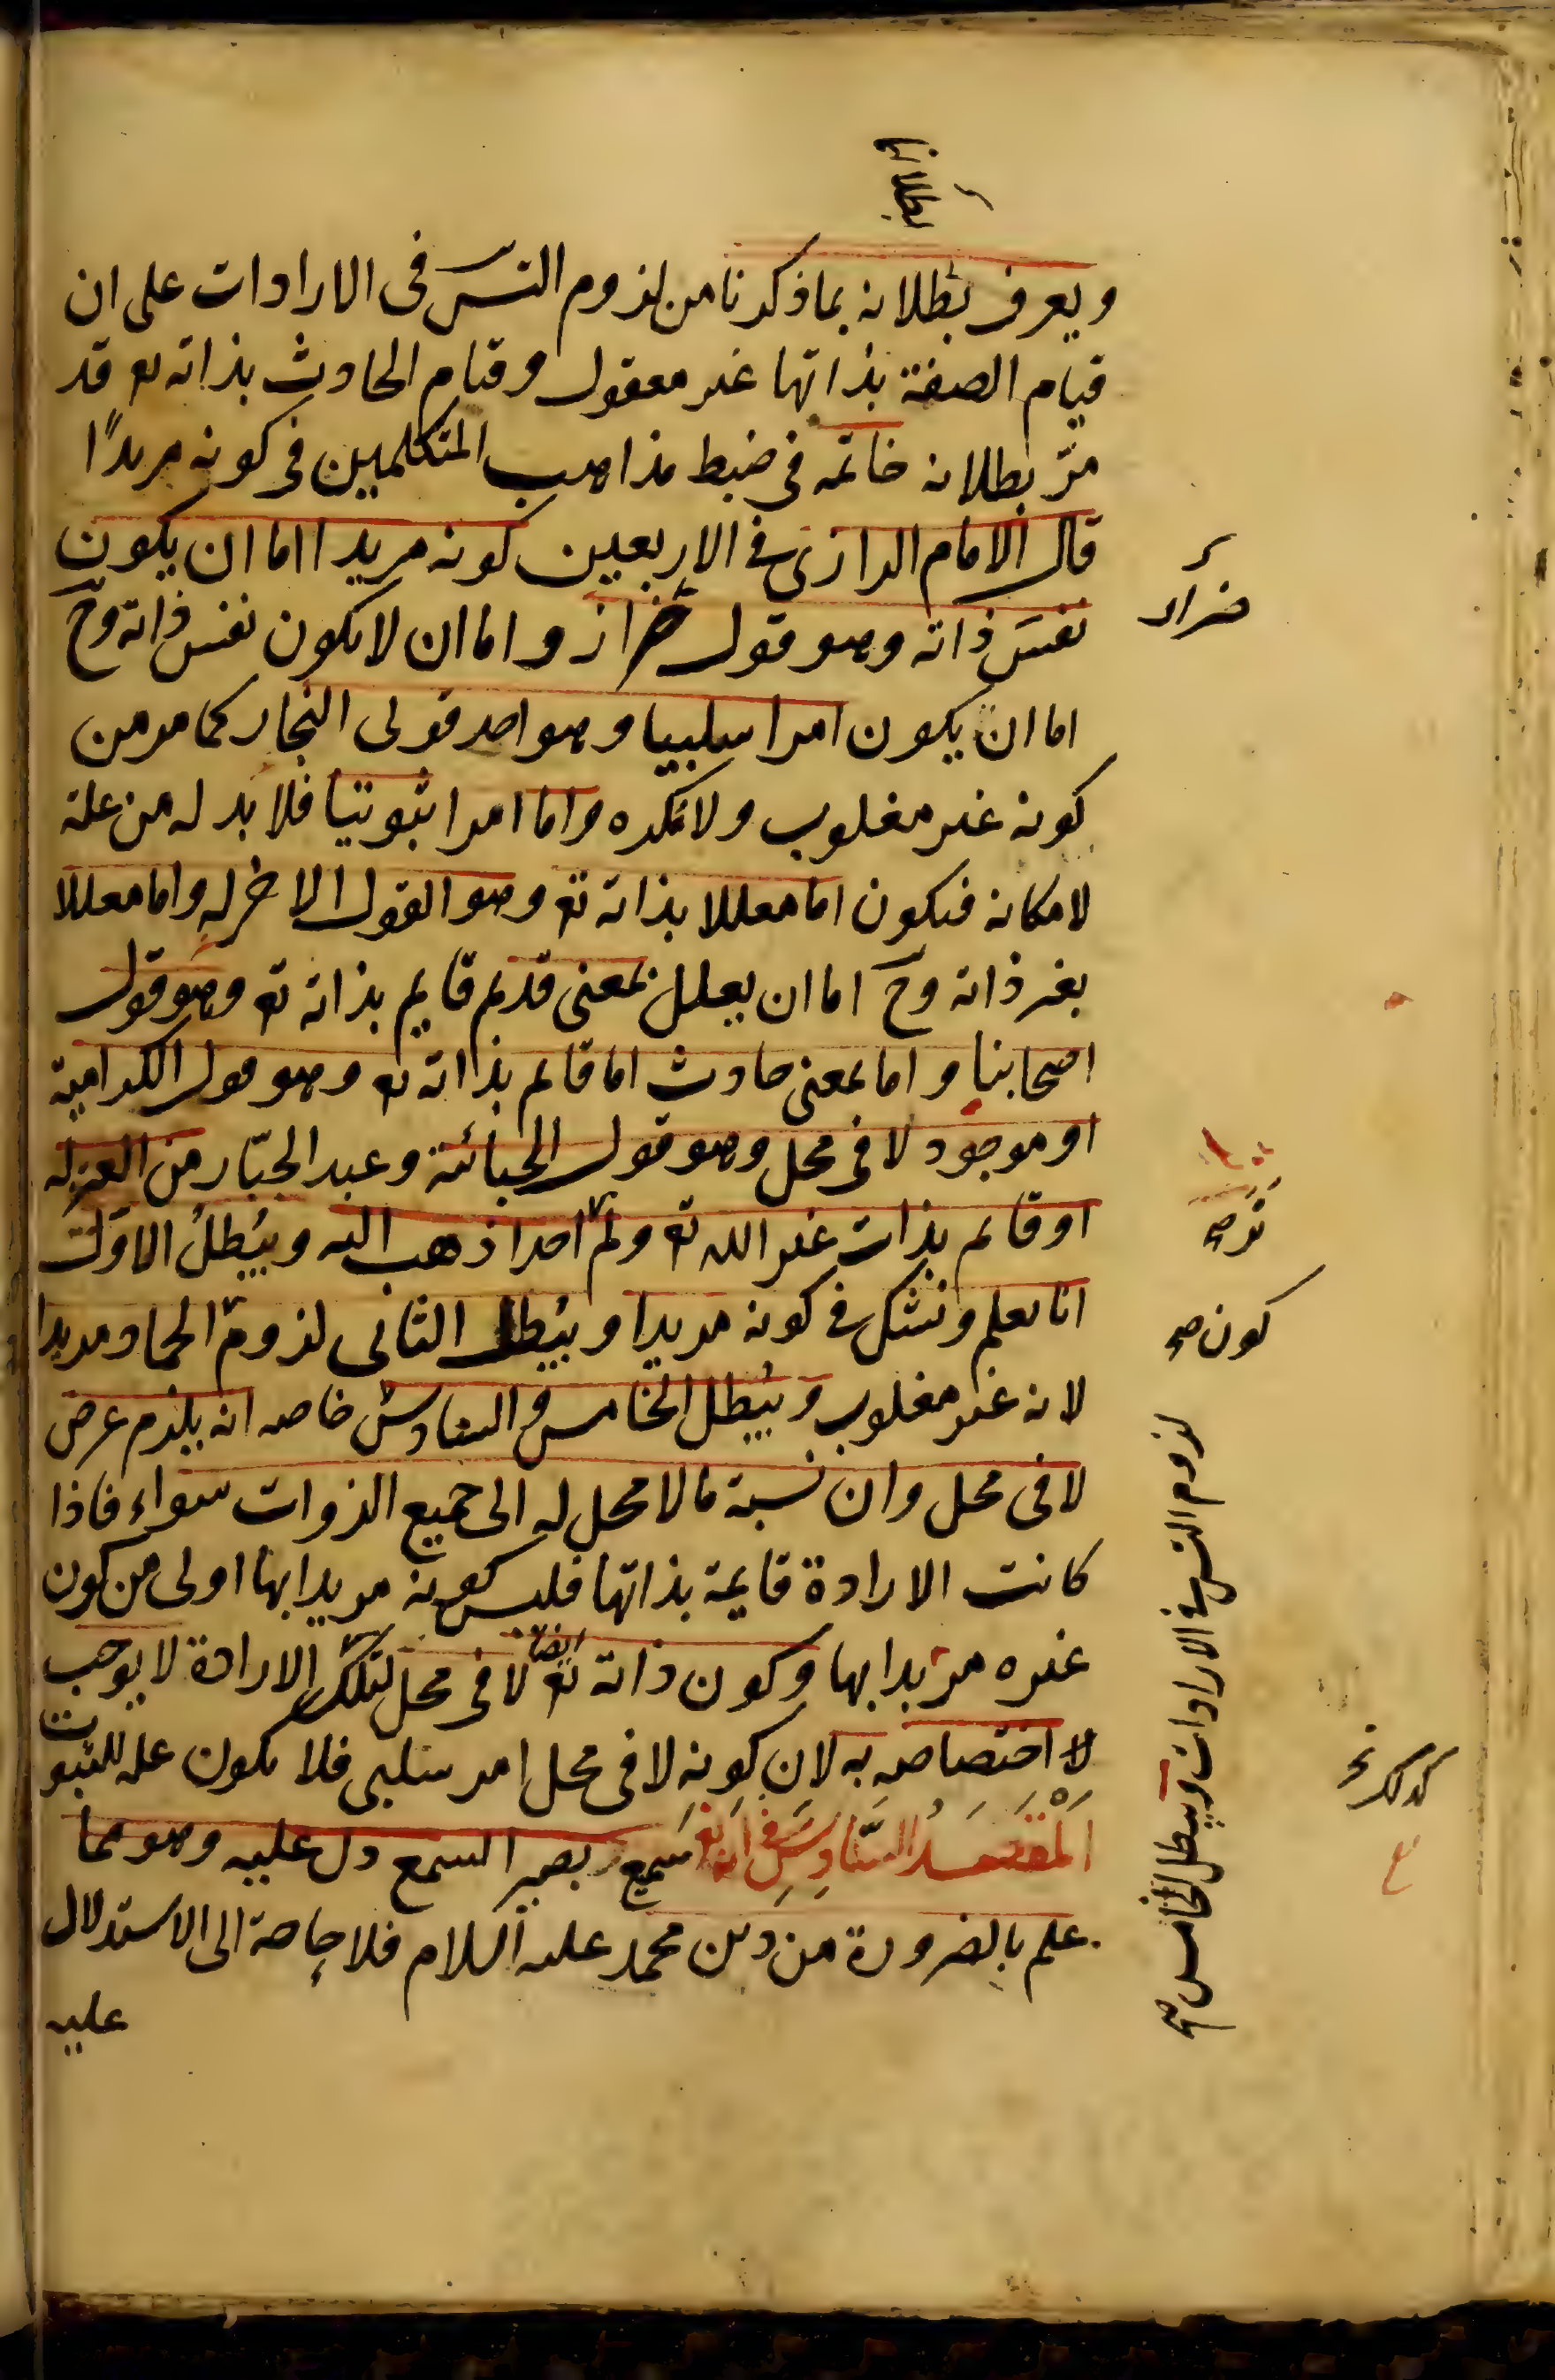 بطلانه
ويعرف بطلانه بما ذكرنا من لزوم التس في الارادات على ان
قيام الصفة بذاتها غير معقول وقيام الحادث بذاته تع قد
مرّ بطلانه خاتمه في ضبط مذاهب المتكلمين في كونه مريدًا
قال الامام الرازى في الاربعين كونه مريدا اما ان يكون
نفس ذاته وهو قول ضرار واما ان لا يكون نفس ذاته وح
ضرار
اما ان يكون امرا سلبيا وهو احد قولى النجار كما مر من
كونه غير مغلوب ولا مكره واما امرا ثبوتيا فلا بد له من علة
لامكانه فيكون اما معللا بذاته تع وهو القول الاخر له واما معللا
بغير ذاته وح اما ان يعلل بمعنى قديم قايم بذاته تع وهو قول
اصحابنا واما بمعنى حادث اما قايم بذاته تع وهو قول الكرامية
او موجود لا في محل وهو قول الجبائية وعبد الجبّار من المعتزلة
او قايم بذات غير الله تع ولم احدا ذهب اليه ويبطل الاول
نر صح
انا نعلم ونشك في كونه مريدا ويبطل الثانى لزوم الجماد مريدا
كون صح
لانه غير مغلوب ويبطل الخامس والسادس خاصه انه يلزم عرض
لا في محل وان نسبة ما لا محل له الى جميع الذوات سواء فاذا
كانت الارادة قايمة بذاتها فليس كونه مريدا بها اولى من كون
غيره مريدا بها وكون ذاته تع ايضا لا في محل لتلك الارادة لا يوجب
كذلك
لا اختصاصه به لان كونه لا في محل امر سلبى فلا يكون عله للثبوت
المقصد السادس في انه تع سميع بصير السمع دل عليه وهو مما
علم بالضرورة من دين محمد عليه السلام فلا حاجة الى الاستدلال
عليه
لزوم التس في الارادات ويبطل الخامس صح